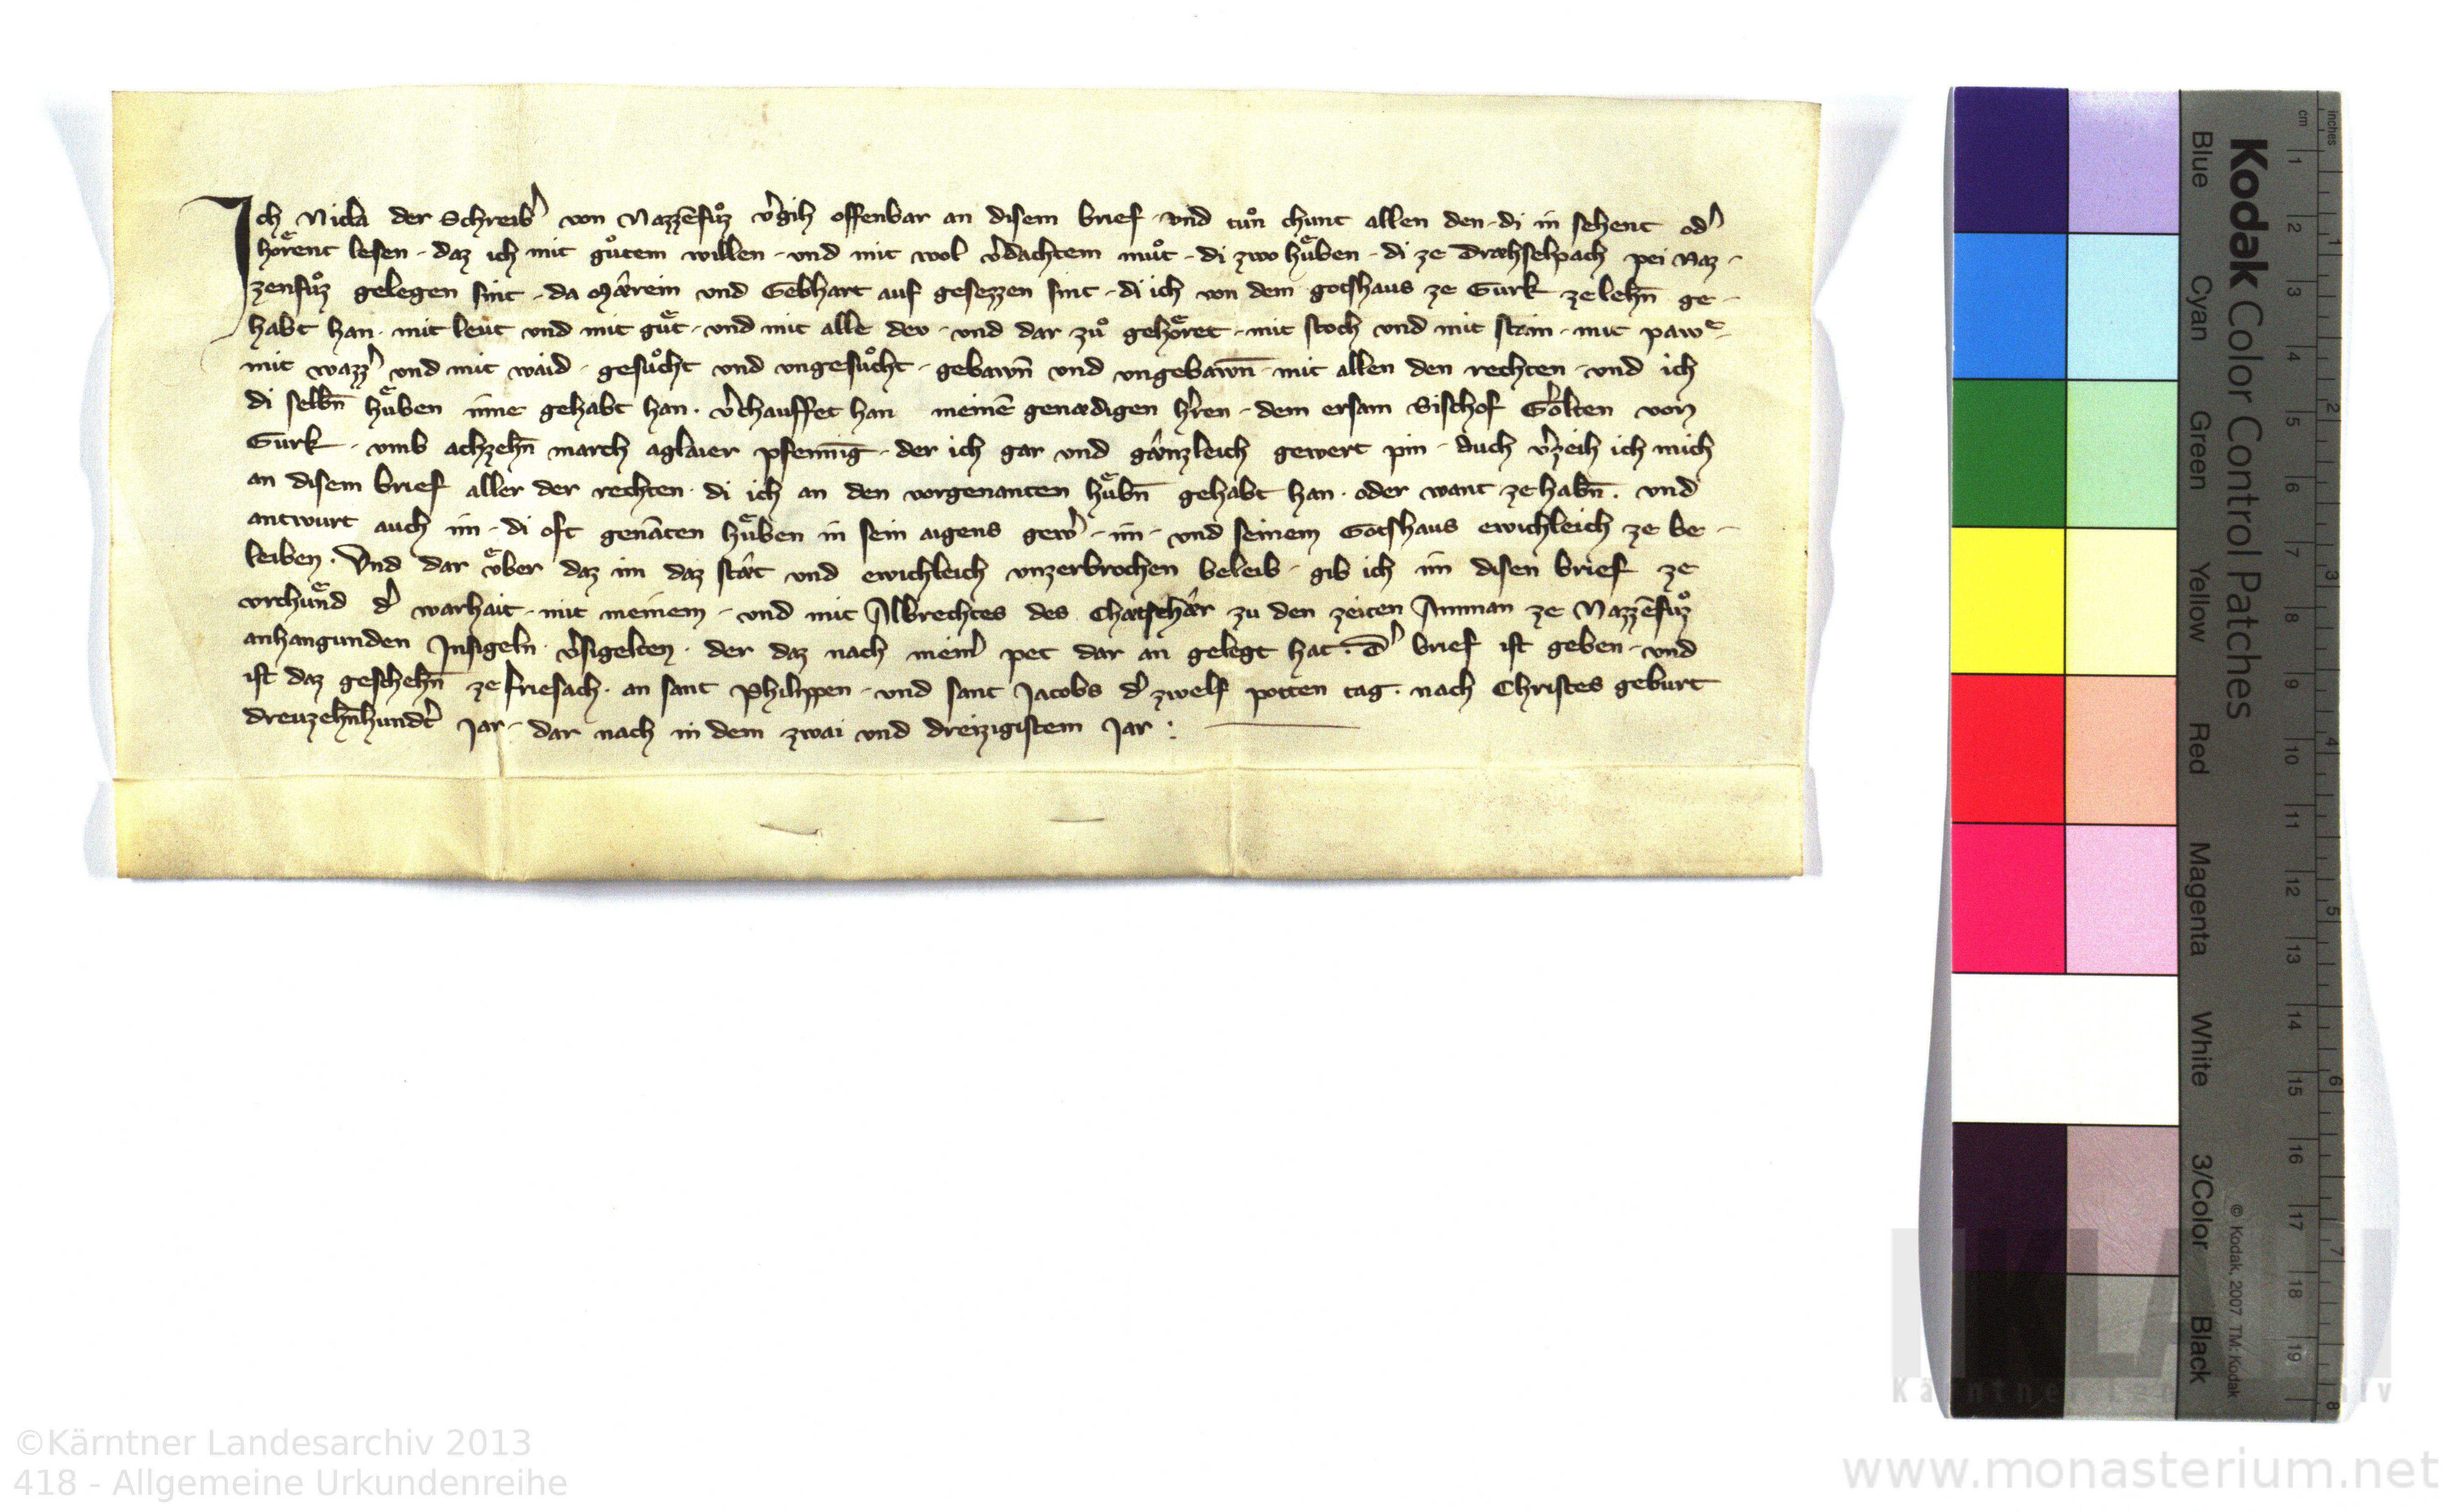 Ich Nicla der Schreib᾽ von Nazzēfuͦz v᾽gih offenbar an disem brief · vnd tuͦn chunt allen den · di in sehent od᾽
hoͤrent lesen · daz ich mit guͦtem willen · vnd mit wol v᾽dachtem muͦt · di zwo huͤben · di ze Drahselpach pei Naz-
zenfuͦz gelegen sint · da Maͤrein vnd Gebhart auf gesezzen sint · di ich von dem gotshaus ze Gurk ze lehn̄ ge-
habt han · mit leut vnd mit guͤt · vnd mit alle dev · vnd dar zuͦ gehoͤret · mit stoch vnd mit stain · mit pawͤ-
mit wazz᾽ vnd mit waid · gesuͦcht vnd vngesuͦcht · gebawn̄ vnd vngebawn̄ · mit allen den rechten · vnd ich
di selbn̄ huͤben inne gehabt han · v᾽chauffet han meinē genædigen h᾽ren · dem ersam Bischof G᾽olten von
Gurk · vmb achzehn̄ march aglaier pfennīg · der ich gar vnd gaͤnzleich gewert pin · Auch v᾽zeih ich mich
an disem brief aller der rechten · di ich an den vorgenanten huͤbn̄ gehabt han · oder want ze habn̄ · vnd
antwurt auch im · di oft genāten huͤben in sein aigens gew᾽ · im · vnd seinem Gotshaus ewichleich ze be-
leiben · Vnd dar vͤber daz im daz staͤt vnd ewichleich vnzerbrochen beleib · gib ich im disen brief ze
vrchuͤnd d᾽ warhait · mit meinem · vnd mit Albrechtes des Chatschaͤr zu den zeiten Amman ze Nazzēfuͦz
anhangunden Insigeln v᾽sigelten · der daz nach mein᾽ pet dar an gelegt hat · D᾽ brief ist geben · vnd
ist daz geschehn̄ ze Friesach · an sant Philippen · vnd sant Jacobs d᾽ zwelf potten tag · nach Christes geburt
dreuzehn̄hundt᾽ Jar · dar nach in dem zwai vnd dreizigistem Jar :
Kodak Color Control Patches
Blue Cyan Green Yellow Red Magenta White 3/Color Black
© Kodak, 2007 TM: Kodak
inches 1 2 3 4 5 6 7 8
cm 1 2 3 4 5 6 7 8 9 10 11 12 13 14 15 16 17 18 19
©Kärntner Landesarchiv 2013
418 - Allgemeine Urkundenreihe
www.monasterium.net